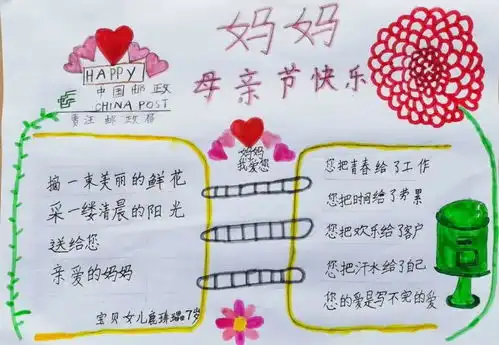 妈妈
母亲节快乐
HAPPY
中国邮政
CHINA POST
贾汪邮政局
妈妈
我爱您
摘一束美丽的鲜花
采一缕清晨的阳光
送给您
亲爱的妈妈
宝贝女儿 7岁
您把青春给了工作
您把时间给了劳累
您把欢乐给了客户
您把汗水给了自己
您的爱是写不完的爱